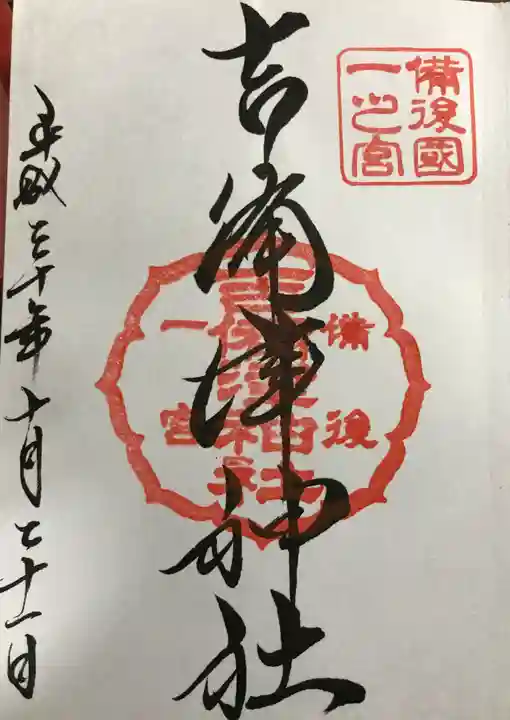 備後國
一之宮
吉備津神社
備後
吉備津神社
一宮
平成三十年十月二十一日